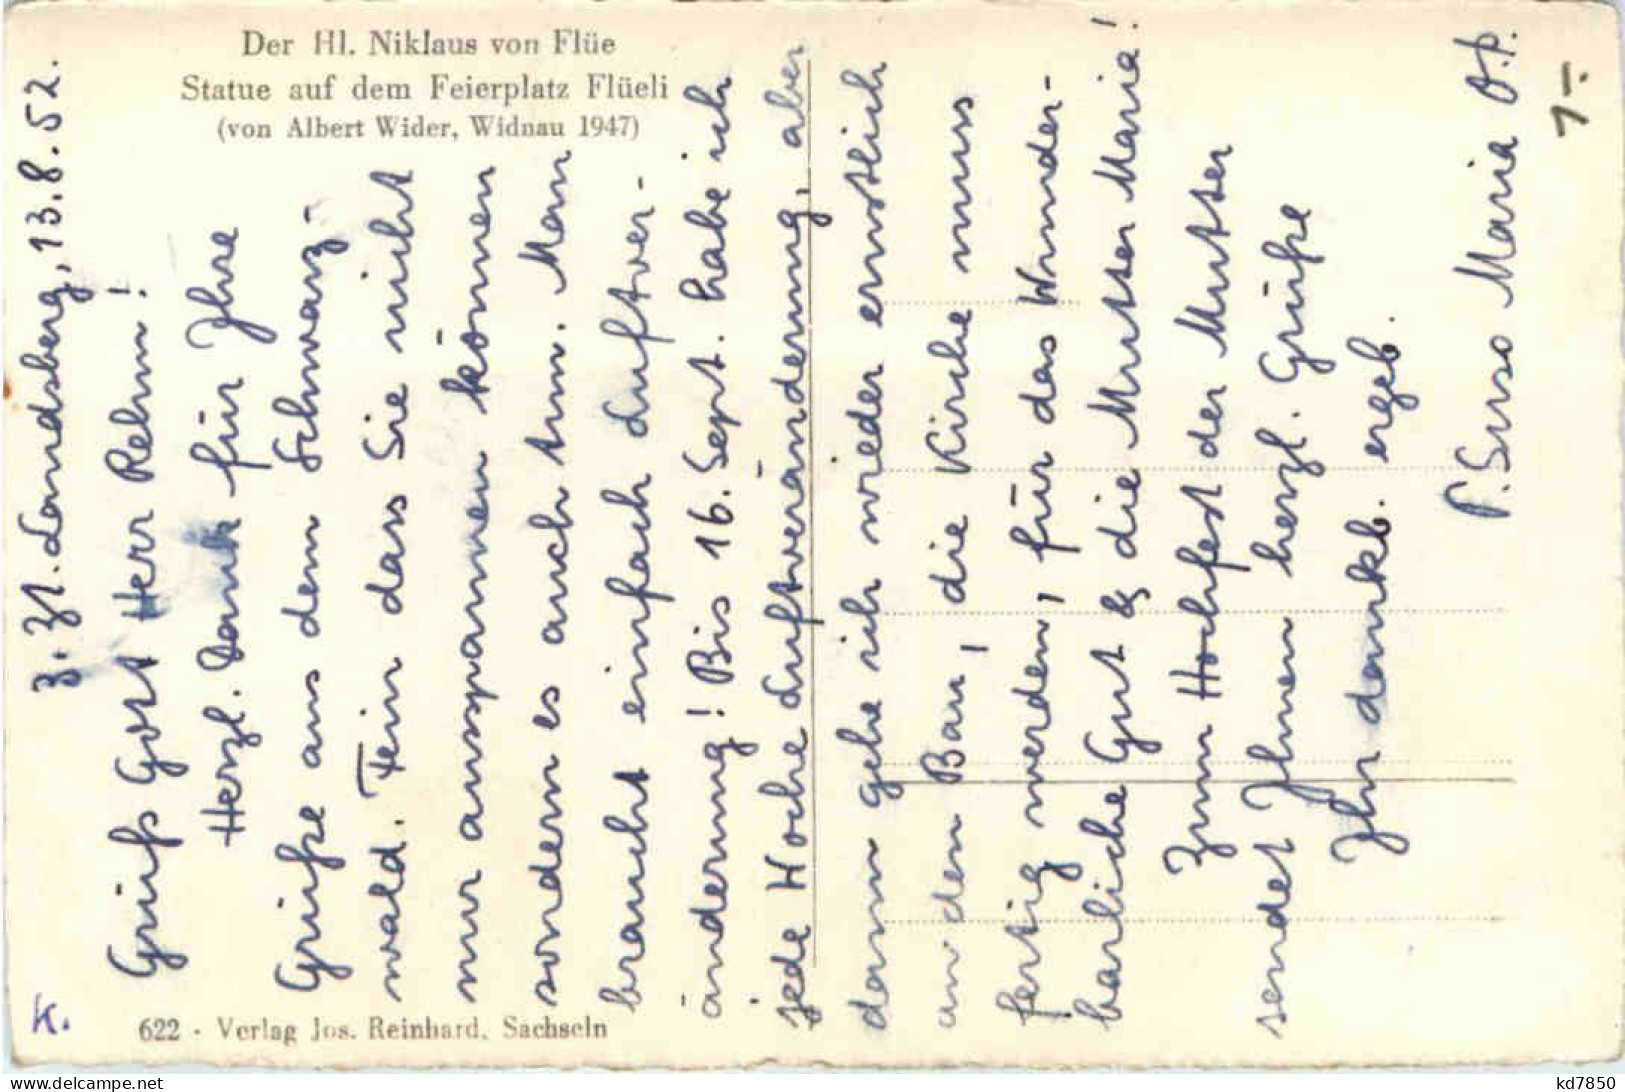 Der Hl. Niklaus von Flüe
Statue auf dem Feierplatz Flüeli
(von Albert Wider, Widnau 1947)
z. Zt. Landsberg, 13.8.52.
Grüß Gott Herr Rehm!
Herzl. Dank für Ihre
Grüße aus dem Schwarz-
wald. Fein dass Sie nicht
nur ausspannen können
sondern es auch tun. Man
braucht einfach Luftver-
änderung! Bis 16. Sept. habe ich
jede Woche Luftveränderung, aber
dann gehe ich wieder ernstlich
an den Bau, die Kirche muss
fertig werden, für das Wunder-
barliche Gut & die Mutter Maria!
Zum Hochfest der Mutter
sendet Ihnen herzl. Grüße
Ihr dankb. ergeb.
P. Suso Maria O.P.
K.
622 - Verlag Jos. Reinhard, Sachseln
1-
kd7850